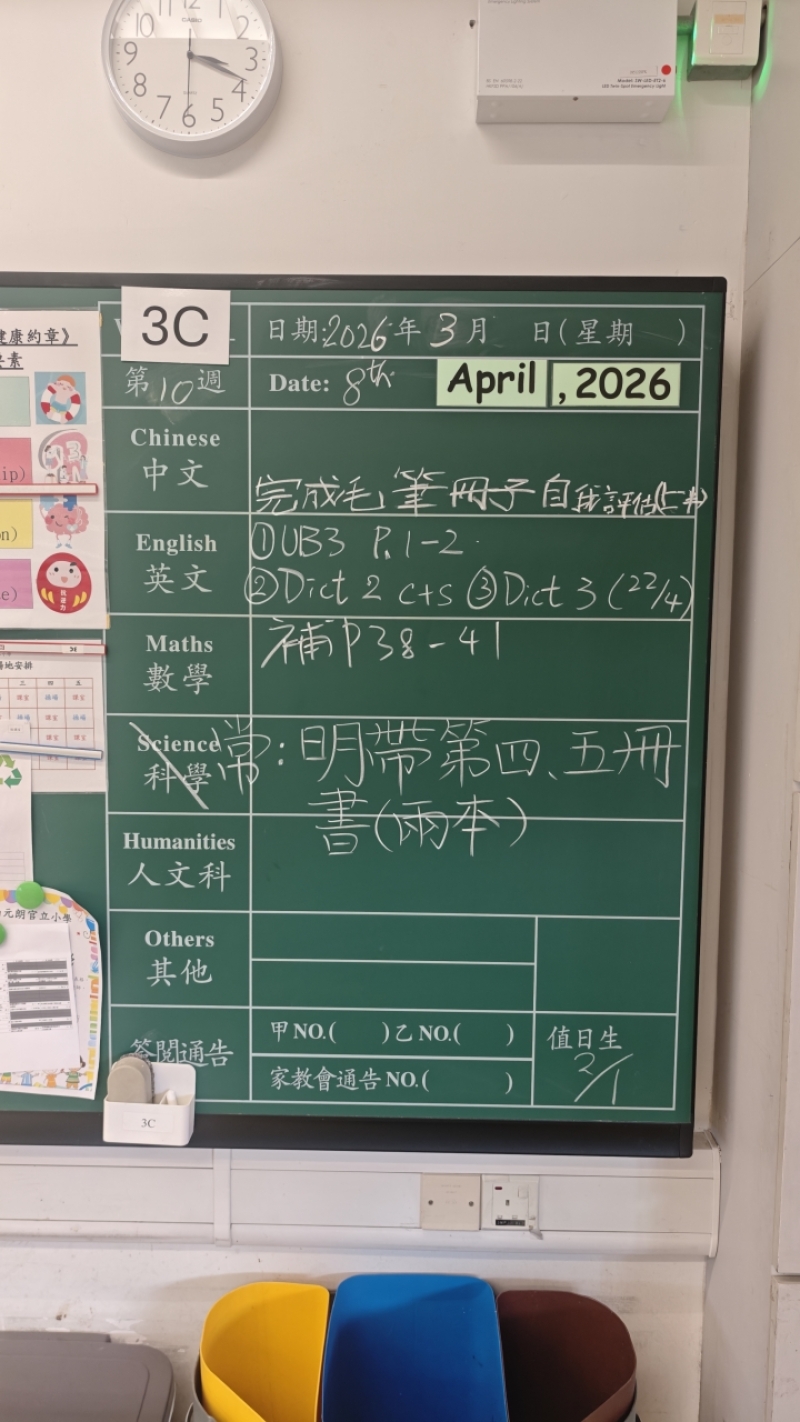 12 11 10 9 8 7 6 5 4 3 2
CASIO
健康約章》
要素
ip)
on)
e)
3C
日期:2026年3月 日(星期 )
第10週
Date: 8th April, 2026
Chinese
中文
完成毛筆冊子自我評估
English
英文
①UB3 P.1-2
②Dict 2 c+s ③Dict 3 (22/4)
Maths
數學
補P38-41
Science
科學
常:明帶第四、五冊
書(兩本)
Humanities
人文科
Others
其他
元朗官立小學
簽閱通告
甲NO.( )乙NO.( )
家教會通告NO.( )
值日生
2/1
3C